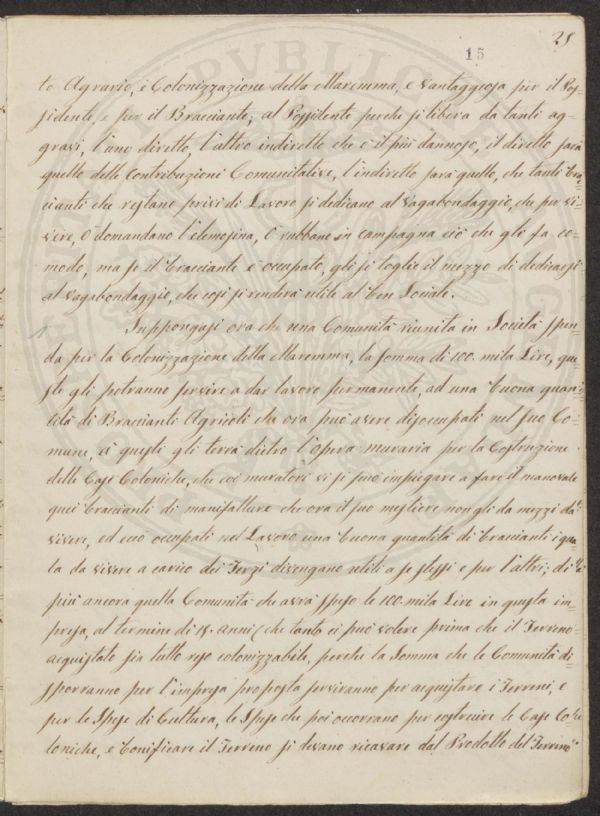 15
25
to Agrario, e Colonizzazione della Maremma, e vantaggiosa per il Pos=
sidente, e per il Bracciante; al Possidente perche si libera da tanti ag=
gravi, l'uno diretto, l'altro indiretto che è il più dannoso, il diretto sarà
quello delle Contribuzioni Comunitative, l'indiretto sarà quello, che tanti Bra=
cianti che restano privi di Lavoro si dedicano al vagabondaggio, che per vi=
vere, o domandano l'elemosina, o rubbano in campagna ciò che gli fa co=
modo, ma se il bracciante è occupato, gli si toglie il mezzo di dedicarsi
al vagabondaggio, che così si renderà utile al ben Sociale.
Supponghasi ora che una Comunità riunita in Società spen=
da per la Colonizzazione della Maremma, la somma di 100. mila Lire, que=
ste gli potranno servire a dar lavoro permanente, ad una buona quan=
tità di Braccianti Agricoli che ora può avere disoccupati nel suo Co=
mune, a questi gli terrà dietro l'opera muraria per la Costruzione
delle Case Coloniche, che coi muratori vi si può impiegare a fare il manovale
quei braccianti di manifatture che ora il suo mestiere non gli da mezzi da
vivere, ed ecco occupati nel Lavoro una buona quantità di bracianti i qua=
la da vivere a carico dei Terzi divengano utili a se stessi e per l'altri; di
più ancora quella Comunità che avrà speso le 100. mila Lire in questa im=
presa, al termine di 15. anni (che tanto ci può volere prima che il Terreno
acquistato sia tutto reso colonizzabile, perche la Somma che le Comunità di=
sporranno per l'impresa proposta serviranno per acquistare i Terreni, e
per le Spese di Cultura, le Spese che poi occorrano per costruire le Case Co=
loniche, e bonificare il Terreno si devano ricavare dal Prodotto del Terreno